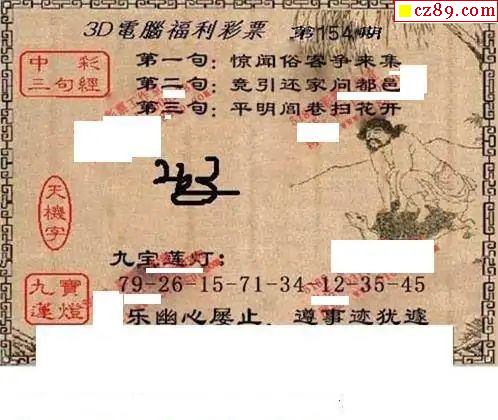 cz89.com
3D電腦福利彩票 第154期
中彩
三句經
第一句：惊闻俗客争来集
第二句：竞引还家问都邑
第三句：平明闾巷扫花开
天機字
九宝莲灯：
九寶
蓮燈
79-26-15-71-34-12-35-45
乐幽心屡止，遵事迹犹遽